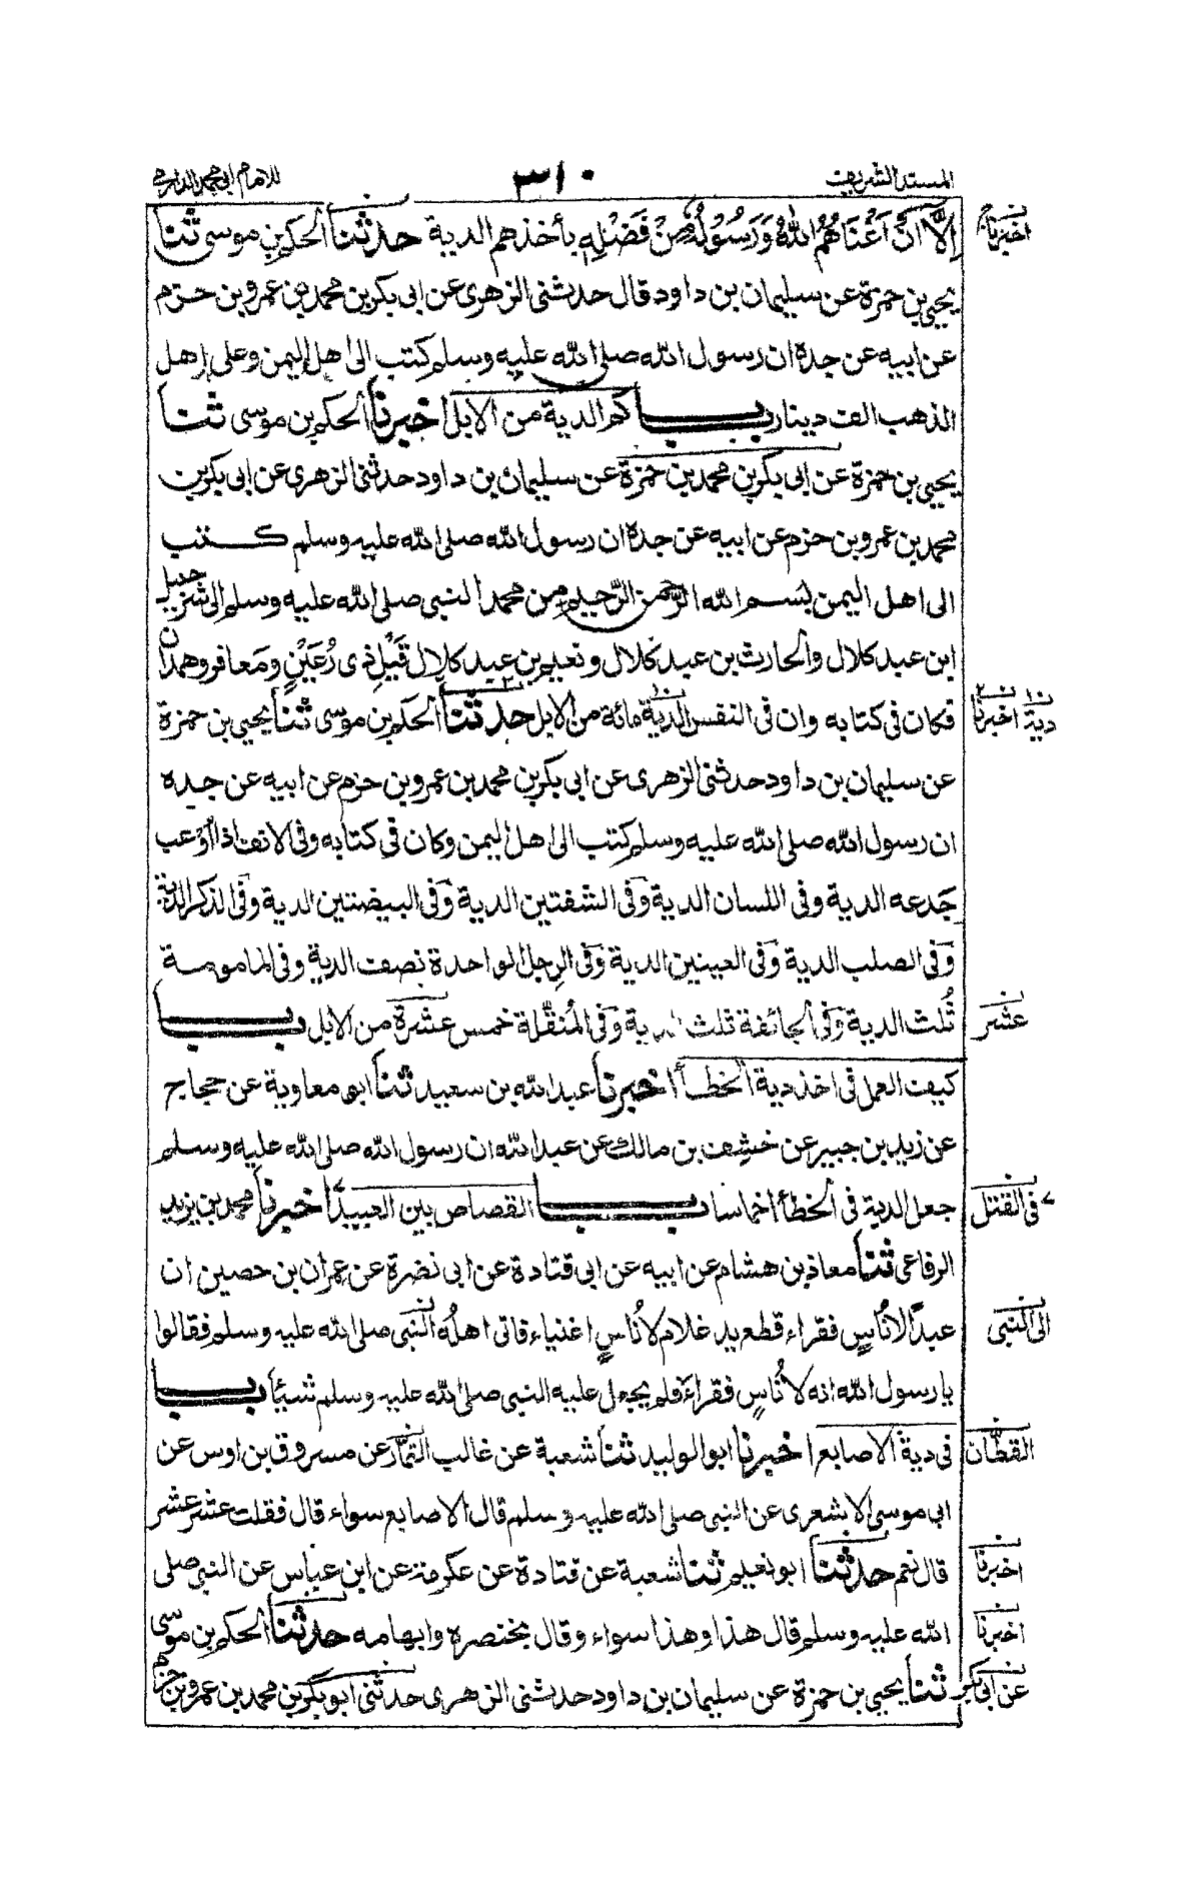 المسند الشريف
٣١٠
للامام ابى محمد الدارمى
إِلَّا أَنْ اَغْنَاهُمُ اللهُ وَرَسُوْلُهُ مِنْ فَضْلِهِ بأخذهم الدية حدثنا الحكم بن موسى ثنا
اخبرنا
يحيى بن حمزة عن سليمان بن داود قال حدثنى الزهرى عن ابى بكر بن محمد بن عمرو بن حزم
عن ابيه عن جده ان رسول الله صلى الله عليه وسلم كتب الى اهل اليمن وعلى اهل
الذهب الف دينار باب كم الدية من الابل اخبرنا الحكم بن موسى ثنا
يحيى بن حمزة عن ابى بكر بن محمد بن حمزة عن سليمان بن داود حدثنى الزهرى عن ابى بكر بن
محمد بن عمرو بن حزم عن ابيه عن جده ان رسول الله صلى الله عليه وسلم كتب
الى اهل اليمن بسم الله الرحمن الرحيم من محمد النبى صلى الله عليه وسلم الى شرحبيل
ابن عبد كلال والحارث بن عبد كلال ونعيم بن عبد كلال قَيْلِ ذى رُعَيْنٍ ومَعافر وهمدان
فكان فى كتابه وان فى النفس الدية مائة من الابل حدثنا الحكم بن موسى ثنا يحيى بن حمزة
دية اخبرنا
عن سليمان بن داود حدثنى الزهرى عن ابى بكر بن محمد بن عمرو بن حزم عن ابيه عن جده
ان رسول الله صلى الله عليه وسلم كتب الى اهل اليمن وكان فى كتابه وفى الانف اذا اُوْعب
جَدعه الدية وفى اللسان الدية وَفى الشفتين الدية وَفى البيضتين الدية وَفى الذكر الدية
وَفى الصلب الدية وَفى العينين الدية وَفى الرِجل الواحدة نصف الدية وفى المامومة
ثُلث الدية وَفى الجائفة ثلث الدية وَفى المُنقّلة خمس عشرة من الابل باب
عشر
كيف العمل فى اخذ دية الخطأ اخبرنا عبد الله بن سعيد ثنا ابو معاوية عن حجاج
عن زيد بن جبير عن خشِف بن مالك عن عبد الله ان رسول الله صلى الله عليه وسلم
جعل الدية فى الخطأ اخماسا باب القصاص بين العبيد اخبرنا محمد بن يزيد
فى القتل
الرفاعى ثنا معاذ بن هشام عن ابيه عن ابى قتادة عن ابى نضرة عن عمران بن حصين ان
عبدًا لاُناسٍ فقراء قطع يد غلام لاُناسٍ اغنياء فاتى اهلُه النبى صلى الله عليه وسلم فقالوا
الى النبى
يا رسول الله انه لاُناسٍ فقراء فلم يجعل عليه النبى صلى الله عليه وسلم شيئا باب
فى دية الاصابع اخبرنا ابو الوليد ثنا شعبة عن غالب التمّار عن مسروق بن اوس عن
القطّان
ابى موسى الاشعرى عن النبى صلى الله عليه وسلم قال الاصابع سواء قال فقلت عشر عشر
قال نعم حدثنا ابو نعيم ثنا شعبة عن قتادة عن عكرمة عن ابن عباس عن النبى صلى
اخبرنا
الله عليه وسلم قال هذا وهذا سواء وقال بخنصره وابهامه حدثنا الحكم بن موسى
اخبرنا
ثنا يحيى بن حمزة عن سليمان بن داود حدثنى الزهرى حدثنى ابو بكر بن محمد بن عمرو بن حزم
عن ابى بكر